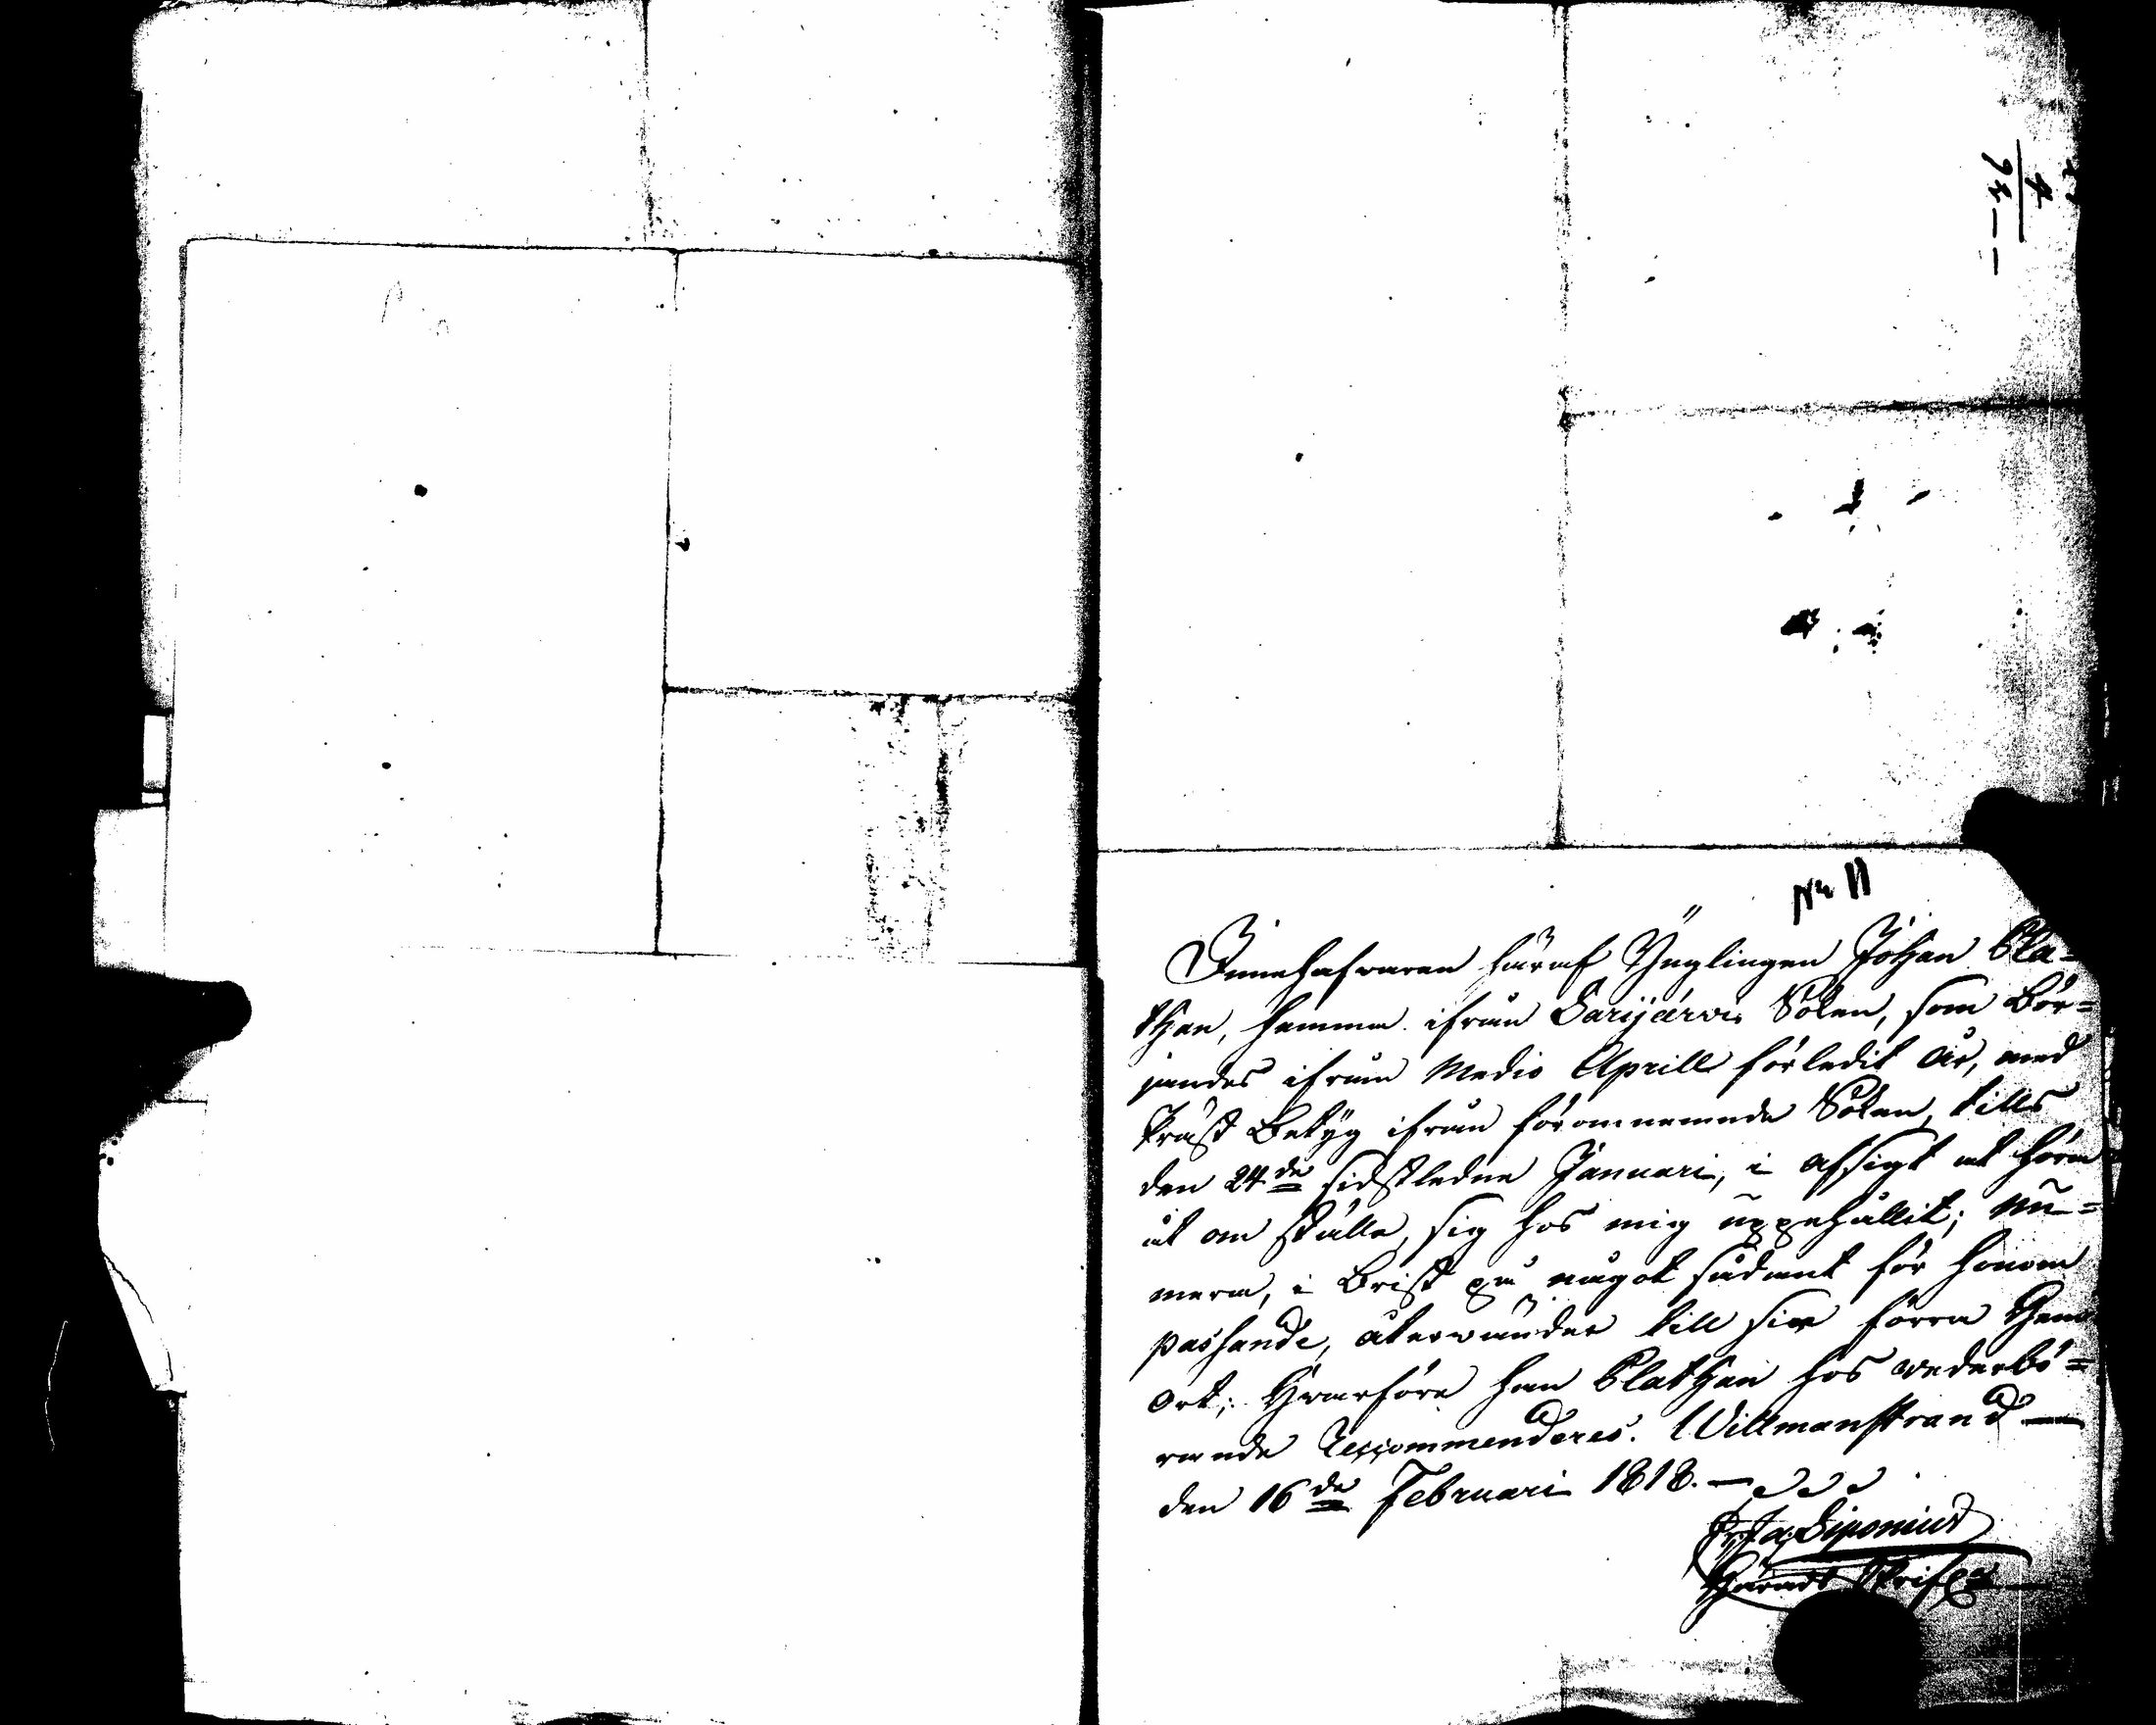 4
94 — —
No 11
Innehafvaren häraf Ynglingen Johan Pla=
than, hemma ifrån Sarijärvi Sokn, som Bör=
jandes ifrån Medio Aprill förledit År, med
Präst Betyg ifrån föromnemnde Sokn, tills
den 24de sidstledne Januari, i afsigt at höra
åt om ställe, sig hos mig uppehållit; Nu=
mera, i Brist på något sådant för honom
passande, återvänder till sin förra Hem
ort; Hvarföre han Plathan hos wederbö=
rande Reccommenderes. Willmanstrand —
den 16de Februari 1818. —
Siponius
Härads Skrifv